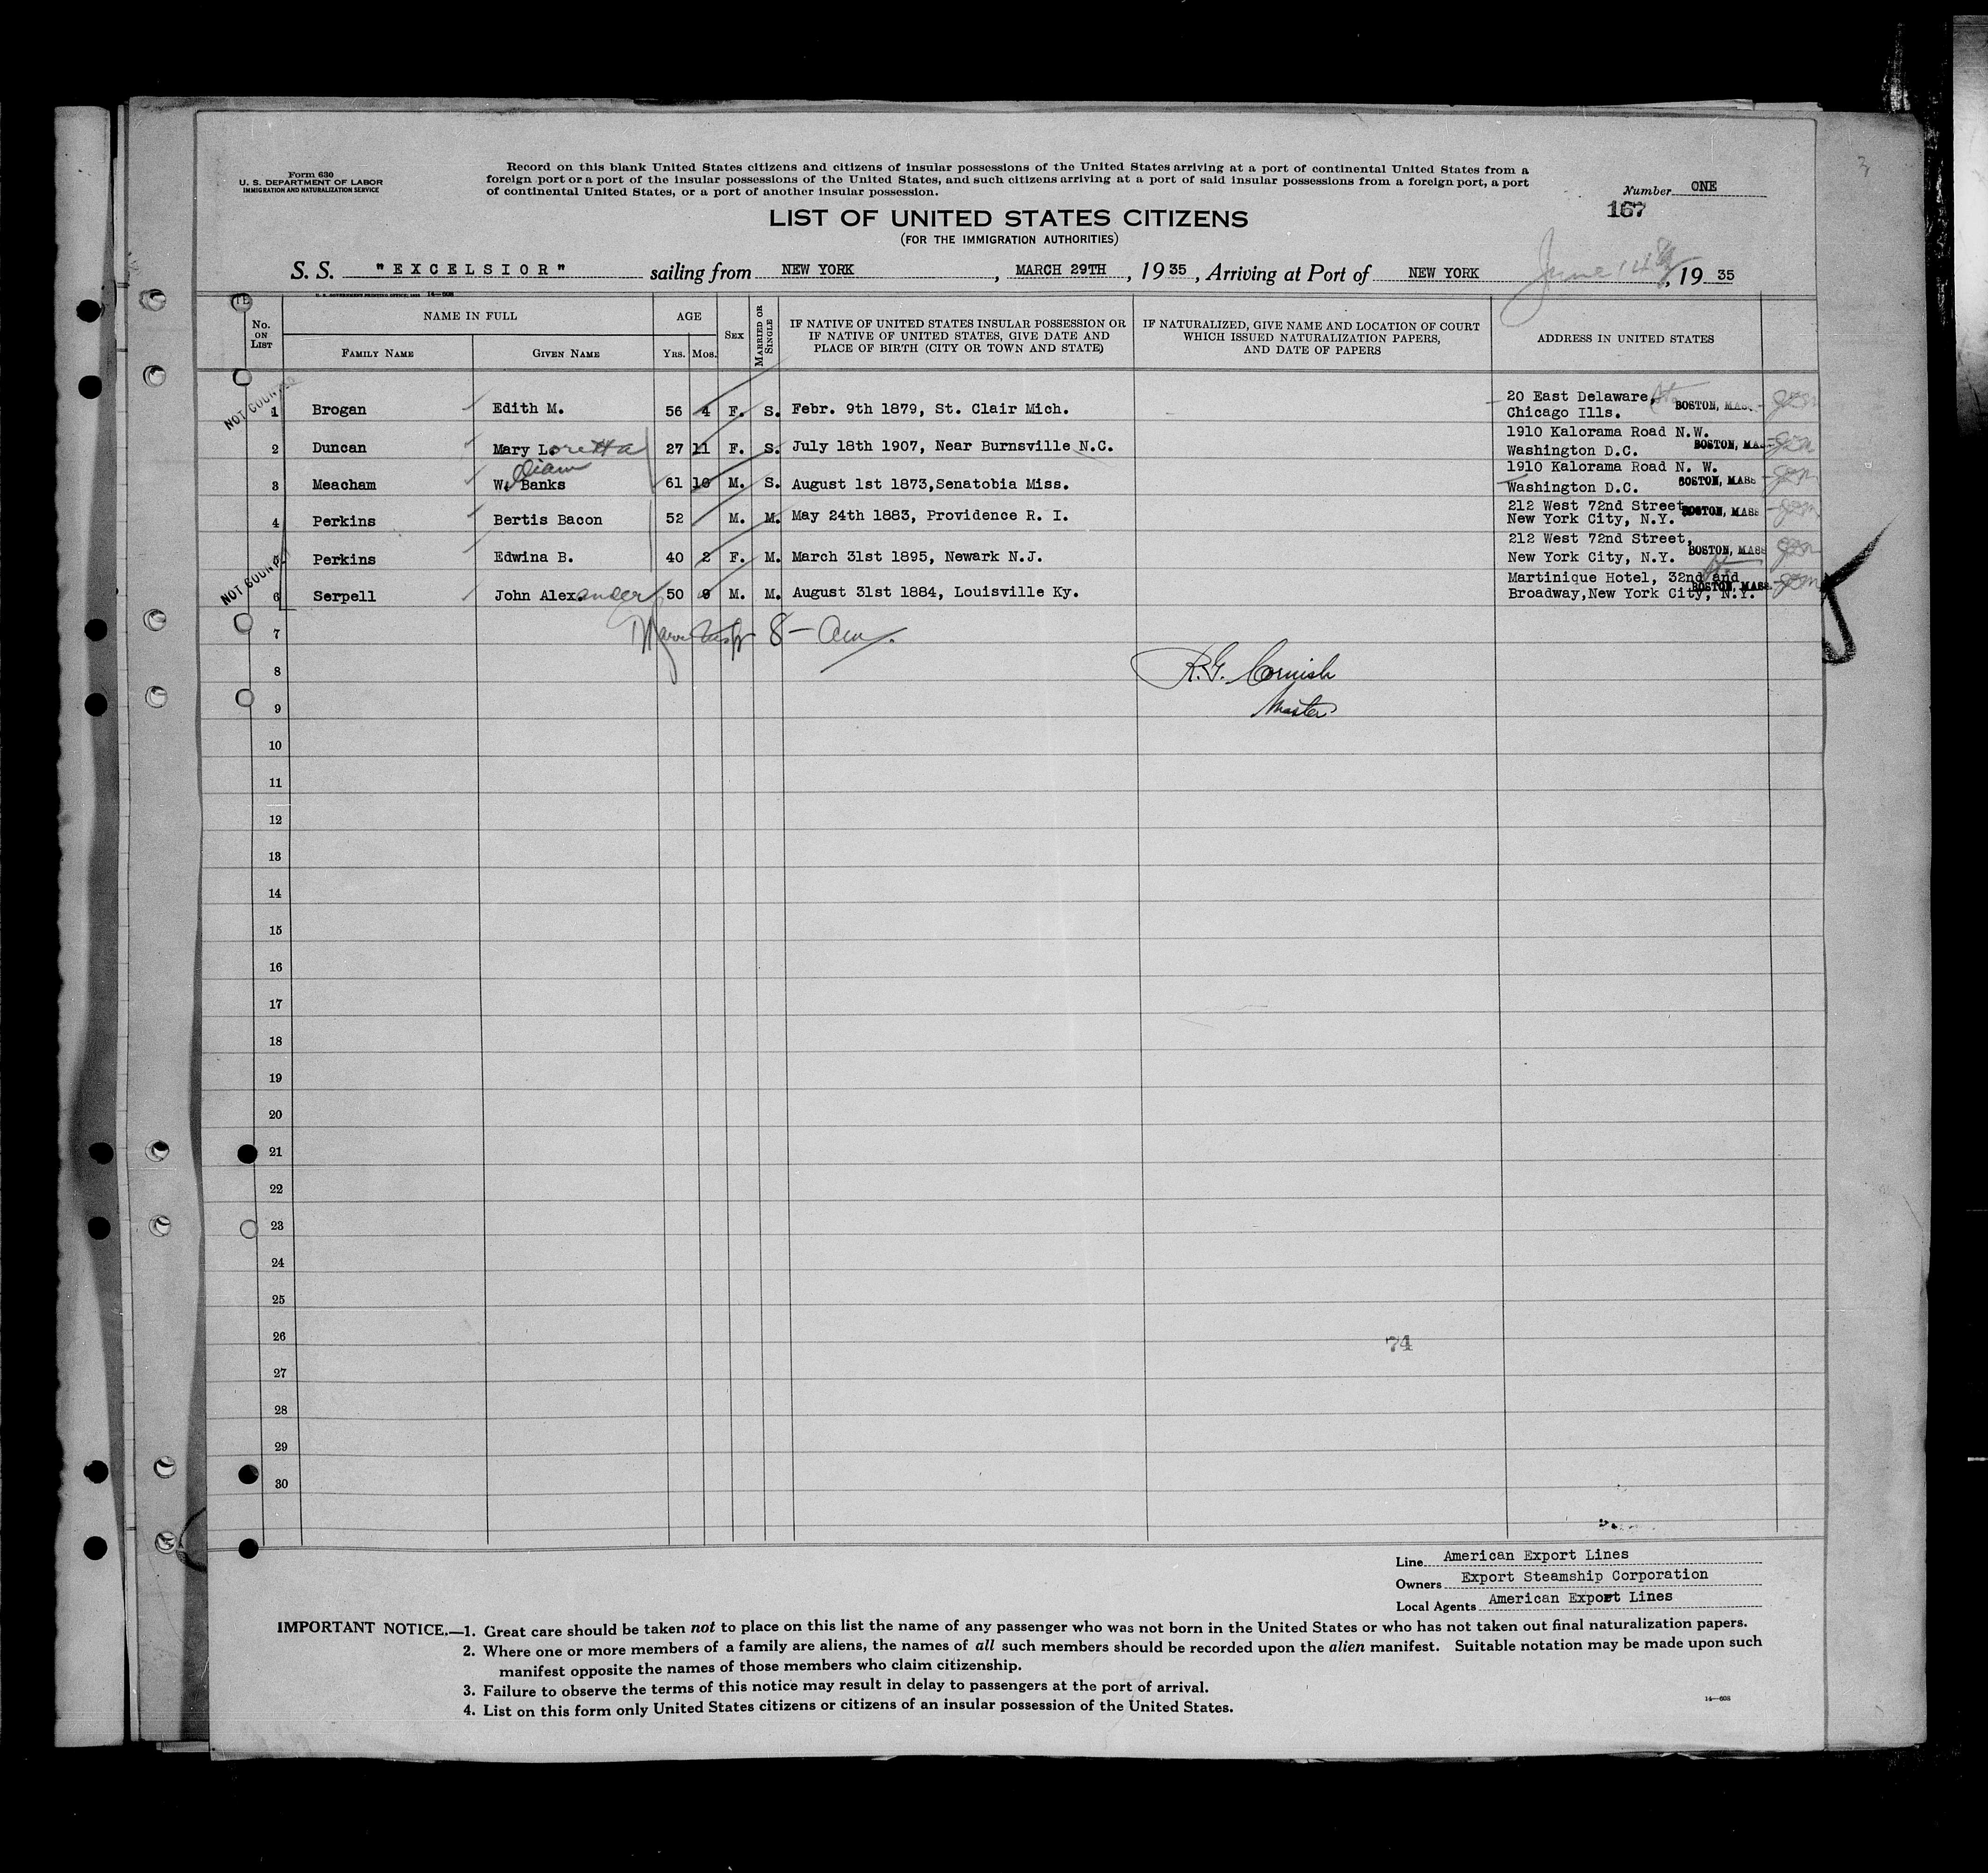 Form 630
U. S. DEPARTMENT OF LABOR
IMMIGRATION AND NATURALIZATION SERVICE
Record on this blank United States citizens and citizens of insular possessions of the United States arriving at a port of continental United States from a
foreign port or a port of the insular possessions of the United States, and such citizens arriving at a port of said insular possessions from a foreign port, a port
of continental United States, or a port of another insular possession.
Number ONE
167
3
LIST OF UNITED STATES CITIZENS
(FOR THE IMMIGRATION AUTHORITIES)
S. S. "EXCELSIOR" sailing from NEW YORK, MARCH 29TH, 1935, Arriving at Port of NEW YORK June 14th, 1935
No. ON LIST
NAME IN FULL
FAMILY NAME
GIVEN NAME
AGE
YRS. MOS.
SEX
MARRIED OR SINGLE
IF NATIVE OF UNITED STATES INSULAR POSSESSION OR
IF NATIVE OF UNITED STATES, GIVE DATE AND
PLACE OF BIRTH (CITY OR TOWN AND STATE)
IF NATURALIZED, GIVE NAME AND LOCATION OF COURT
WHICH ISSUED NATURALIZATION PAPERS,
AND DATE OF PAPERS
ADDRESS IN UNITED STATES
NOT COUNTED
1 Brogan Edith M. 56 4 F. S. Febr. 9th 1879, St. Clair Mich. 20 East Delaware,
Chicago Ills. BOSTON, MASS.
2 Duncan Mary Loretta 27 11 F. S. July 18th 1907, Near Burnsville N.C. 1910 Kalorama Road N.W.
Washington D.C. BOSTON, MASS
3 Meacham W. liam Banks 61 10 M. S. August 1st 1873,Senatobia Miss. 1910 Kalorama Road N. W.
Washington D.C. BOSTON, MASS
4 Perkins Bertis Bacon 52 M. M. May 24th 1883, Providence R. I. 212 West 72nd Street,
New York City, N.Y. BOSTON, MASS
5 Perkins Edwina B. 40 2 F. M. March 31st 1895, Newark N.J. 212 West 72nd Street,
New York City, N.Y. BOSTON, MASS
NOT COUNTED
6 Serpell John Alexander 50 9 M. M. August 31st 1884, Louisville Ky. Martinique Hotel, 32nd and
Broadway,New York City, N.Y. BOSTON, MASS.
7 8 - am.
8 R.G. Cornish
9 Master
10
11
12
13
14
15
16
17
18
19
20
21
22
23
24
25
26
74
27
28
29
30
Line American Export Lines
Owners Export Steamship Corporation
Local Agents American Export Lines
IMPORTANT NOTICE.—1. Great care should be taken not to place on this list the name of any passenger who was not born in the United States or who has not taken out final naturalization papers.
2. Where one or more members of a family are aliens, the names of all such members should be recorded upon the alien manifest. Suitable notation may be made upon such
manifest opposite the names of those members who claim citizenship.
3. Failure to observe the terms of this notice may result in delay to passengers at the port of arrival.
4. List on this form only United States citizens or citizens of an insular possession of the United States.
14—608